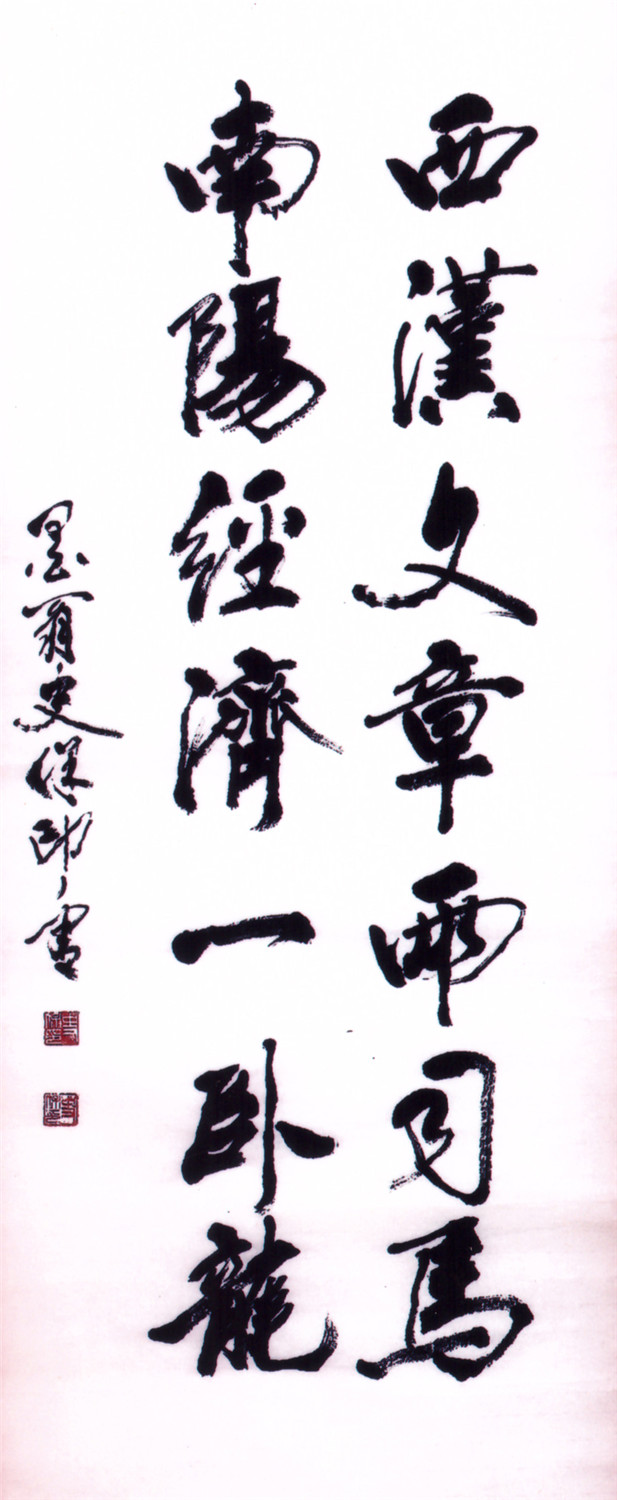 西漢文章兩司馬
南陽經濟一卧龍
墨翁史保印書